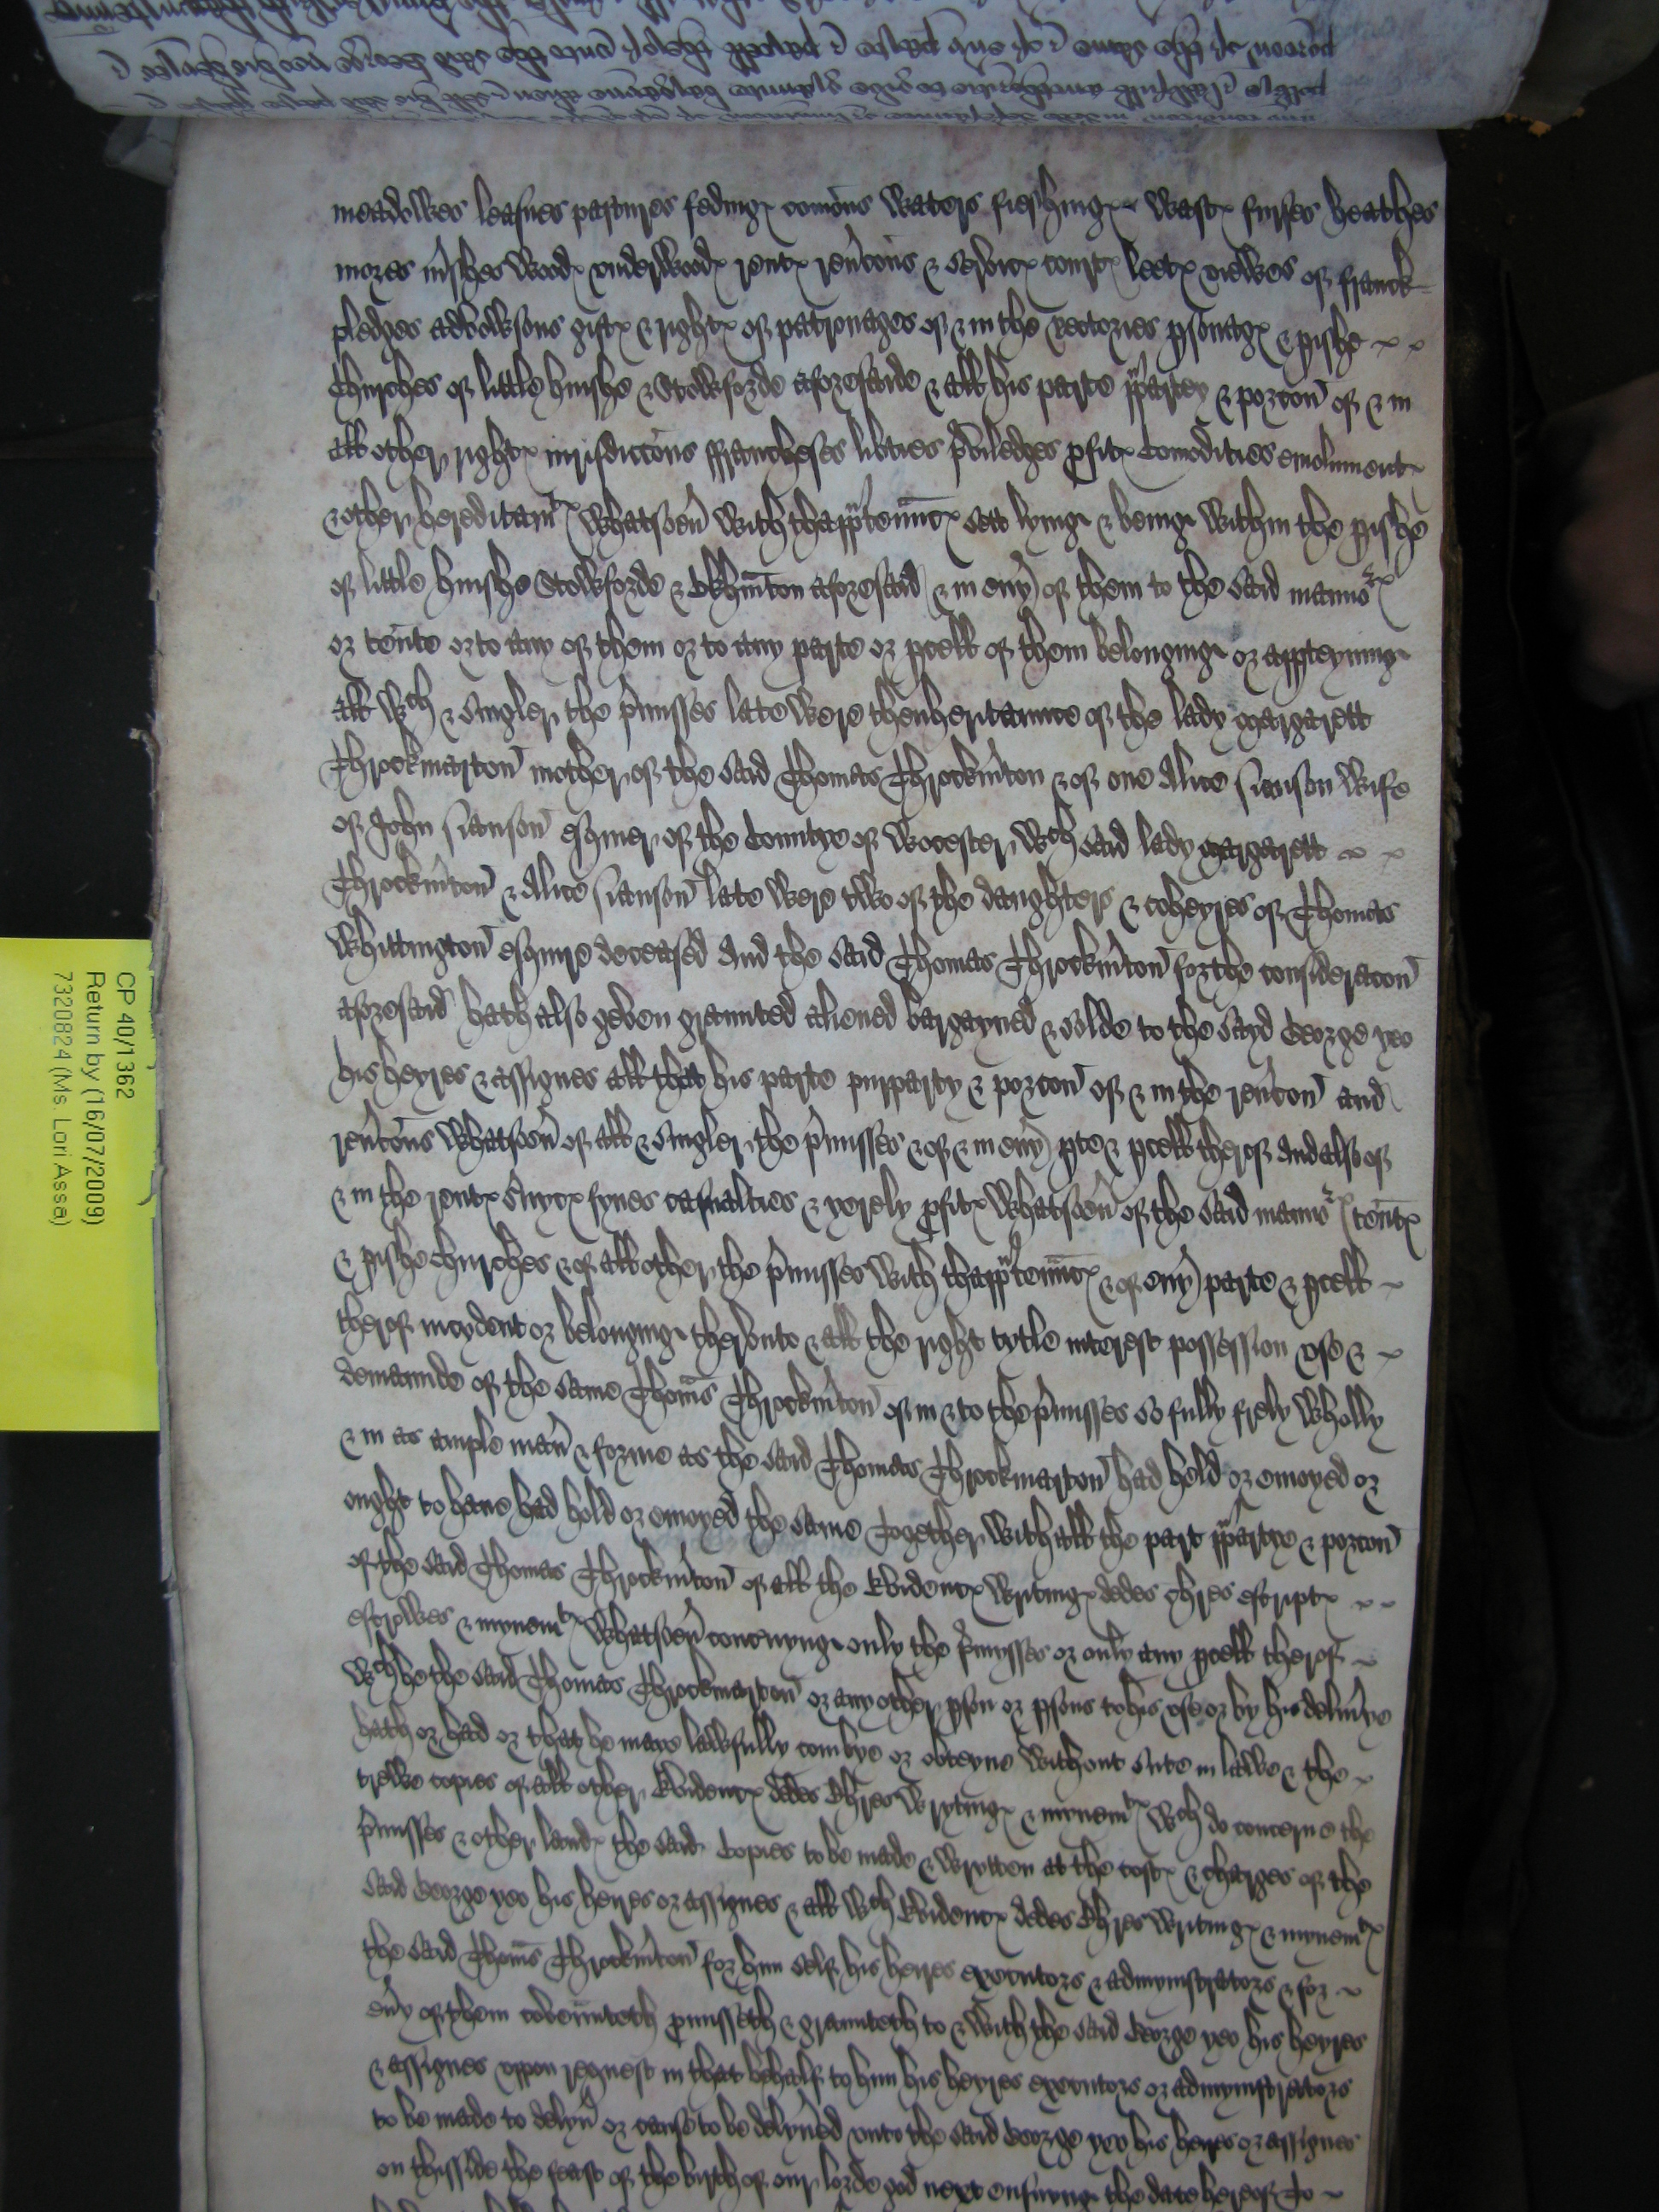 meadowes leasues pastures feding comons Waters fieshing Wast furses heathes
mores mrshes Wood underwood rent rencons & servic court leet viewes of franck
pledges advowsons gift & right of patronages of & in the rectories psonag & pishe
Churches of little huishe & Stowforde aforesaide & all his parte ppartey & porcon of & in
all other right iurisdiccons ffranchises libties priviledges pfit Comodities emolument
& other hereditamt Whatsoeu With thapptennc sett lying & being Within the pishe
of little huishe Stowforde & aforesaid & in euy of them to the said mannor
or tente or to any of them or to any parte or pcell of them belonging or appteyning
all Wch & Singler the pmisses late Were thenheritaunce of the lady Margarett
Throckmarton mother of the said Thomas Throckmton & of one Alice Wife
of John esquier of the Countye of Worcester Wch said lady Margarett
Throckmton & Alice late Were two of the daughters & coheyres of Thomas
Whittington esquire deceased And the said Thomas Throckmton for the consideracon
aforesaid hath also geven graunted aliened bargayned & solde to the sayd George yeo
his heyres & assignes all that his parte purparty & porcon of & in the reucon and
reucons Whatsoeu of all & Singler the pmisses & of & in euy pte & pcell therof And also of
& in the rent suyc fynes casualties & yerely pfit Whatsoeu of the said mannor tent
& pishe churches & of all other the pmisses With thapptennc & of euy parte & pcell
therof incydent or belonging therunto & all the right tytle interest possession use &
demaunde of the same Thoms Throckmton of in & to the pmisses so fully frely Wholly
& in as ample man & forme as the said Thomas Throckmarton had hold or enioyed or
ought to haue had hold or enioyed the same Together With all the part ppartye & porcon
of the said Thomas Throckmton of all the Evidenc Writing dedes chres escript
escrowes & mynemt Whatsoeu concnyng only the pmysses or only any pcell therof
Wch he the said Thomas Throckmarton or any other pson or psons to his use or by his delivye
hath or had or that he maye lawfully com bye or obteyne Without sute in lawe & the
trewe copies of all other Evidenc dedes Chres Wryting & mynemt Wch do concerne the
pmisses & other land the said Copies to be made & Wrytten at the cost & charges of the
said George yeo his heyres or assignes & all Wch Evidenc dedes Chres Writing & mynemt
the said Thoms Throckmton for him self his heyres executors & admynistrators & for
euy of them covenuteth pmisseth & graunteth to & With the said George yeo his heyres
& assignes uppon request in that behalf to him his heyres executors or admynistrators
to be made to delyu or cause to be delyued unto the said George yeo his heyres or assignes
on thisside the feast of the birth of our lorde god next ensuyng the date hereof To
CP 40/1362
Return by (16/07/2009)
7320824 (Ms. Lori Assa)